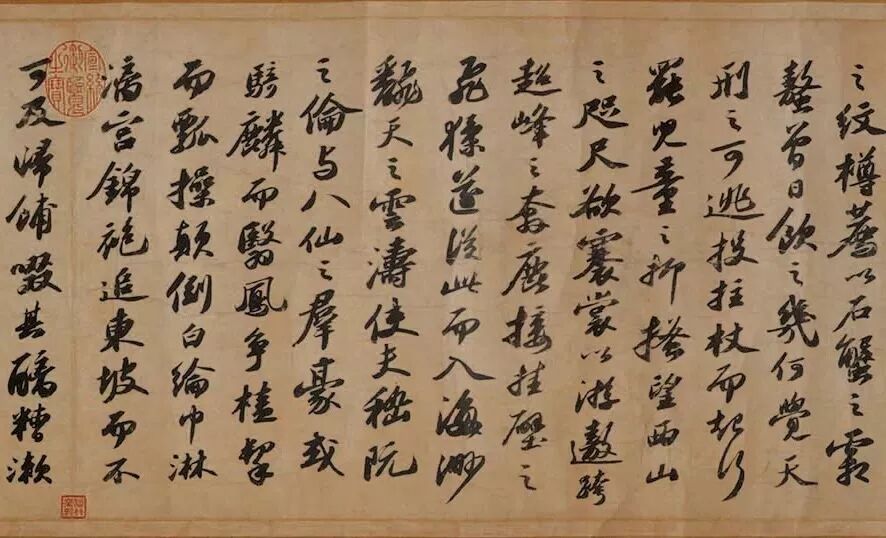 之紋樽薦以石蟹之霜
螯曾日飲之幾何覺天
刑之可逃投拄杖而起行
罷兒童之抑搔望西山
之咫尺欲褰裳以游遨跨
超峰之奔鹿接挂壁之
飛猱遂從此而入海渺
飜天之雲濤使夫嵇阮
之倫与八仙之羣豪或
騎麟而翳鳳爭榼挈
而瓢操顛倒白綸巾淋
漓宮錦袍追東坡而不
可及歸餔歠其醨糟漱
宣統御覽之寶